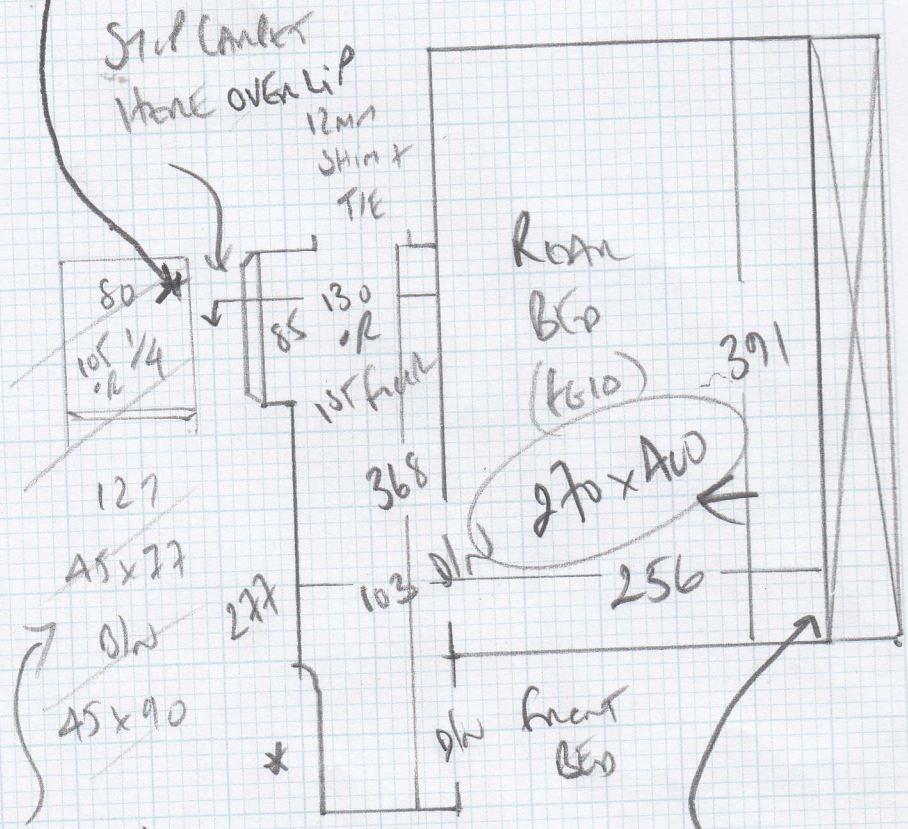 STEP CARPET
HERE OVER LIP
12MM
SHIM +
TIE
80
105 1/4
.R
85
130
.R
105 FLOOR
REAR
BED
391
368
270 x 400
127
45 x 77
D/N
45 x 90
277
103
D/N
256
D/N
FRONT
BED